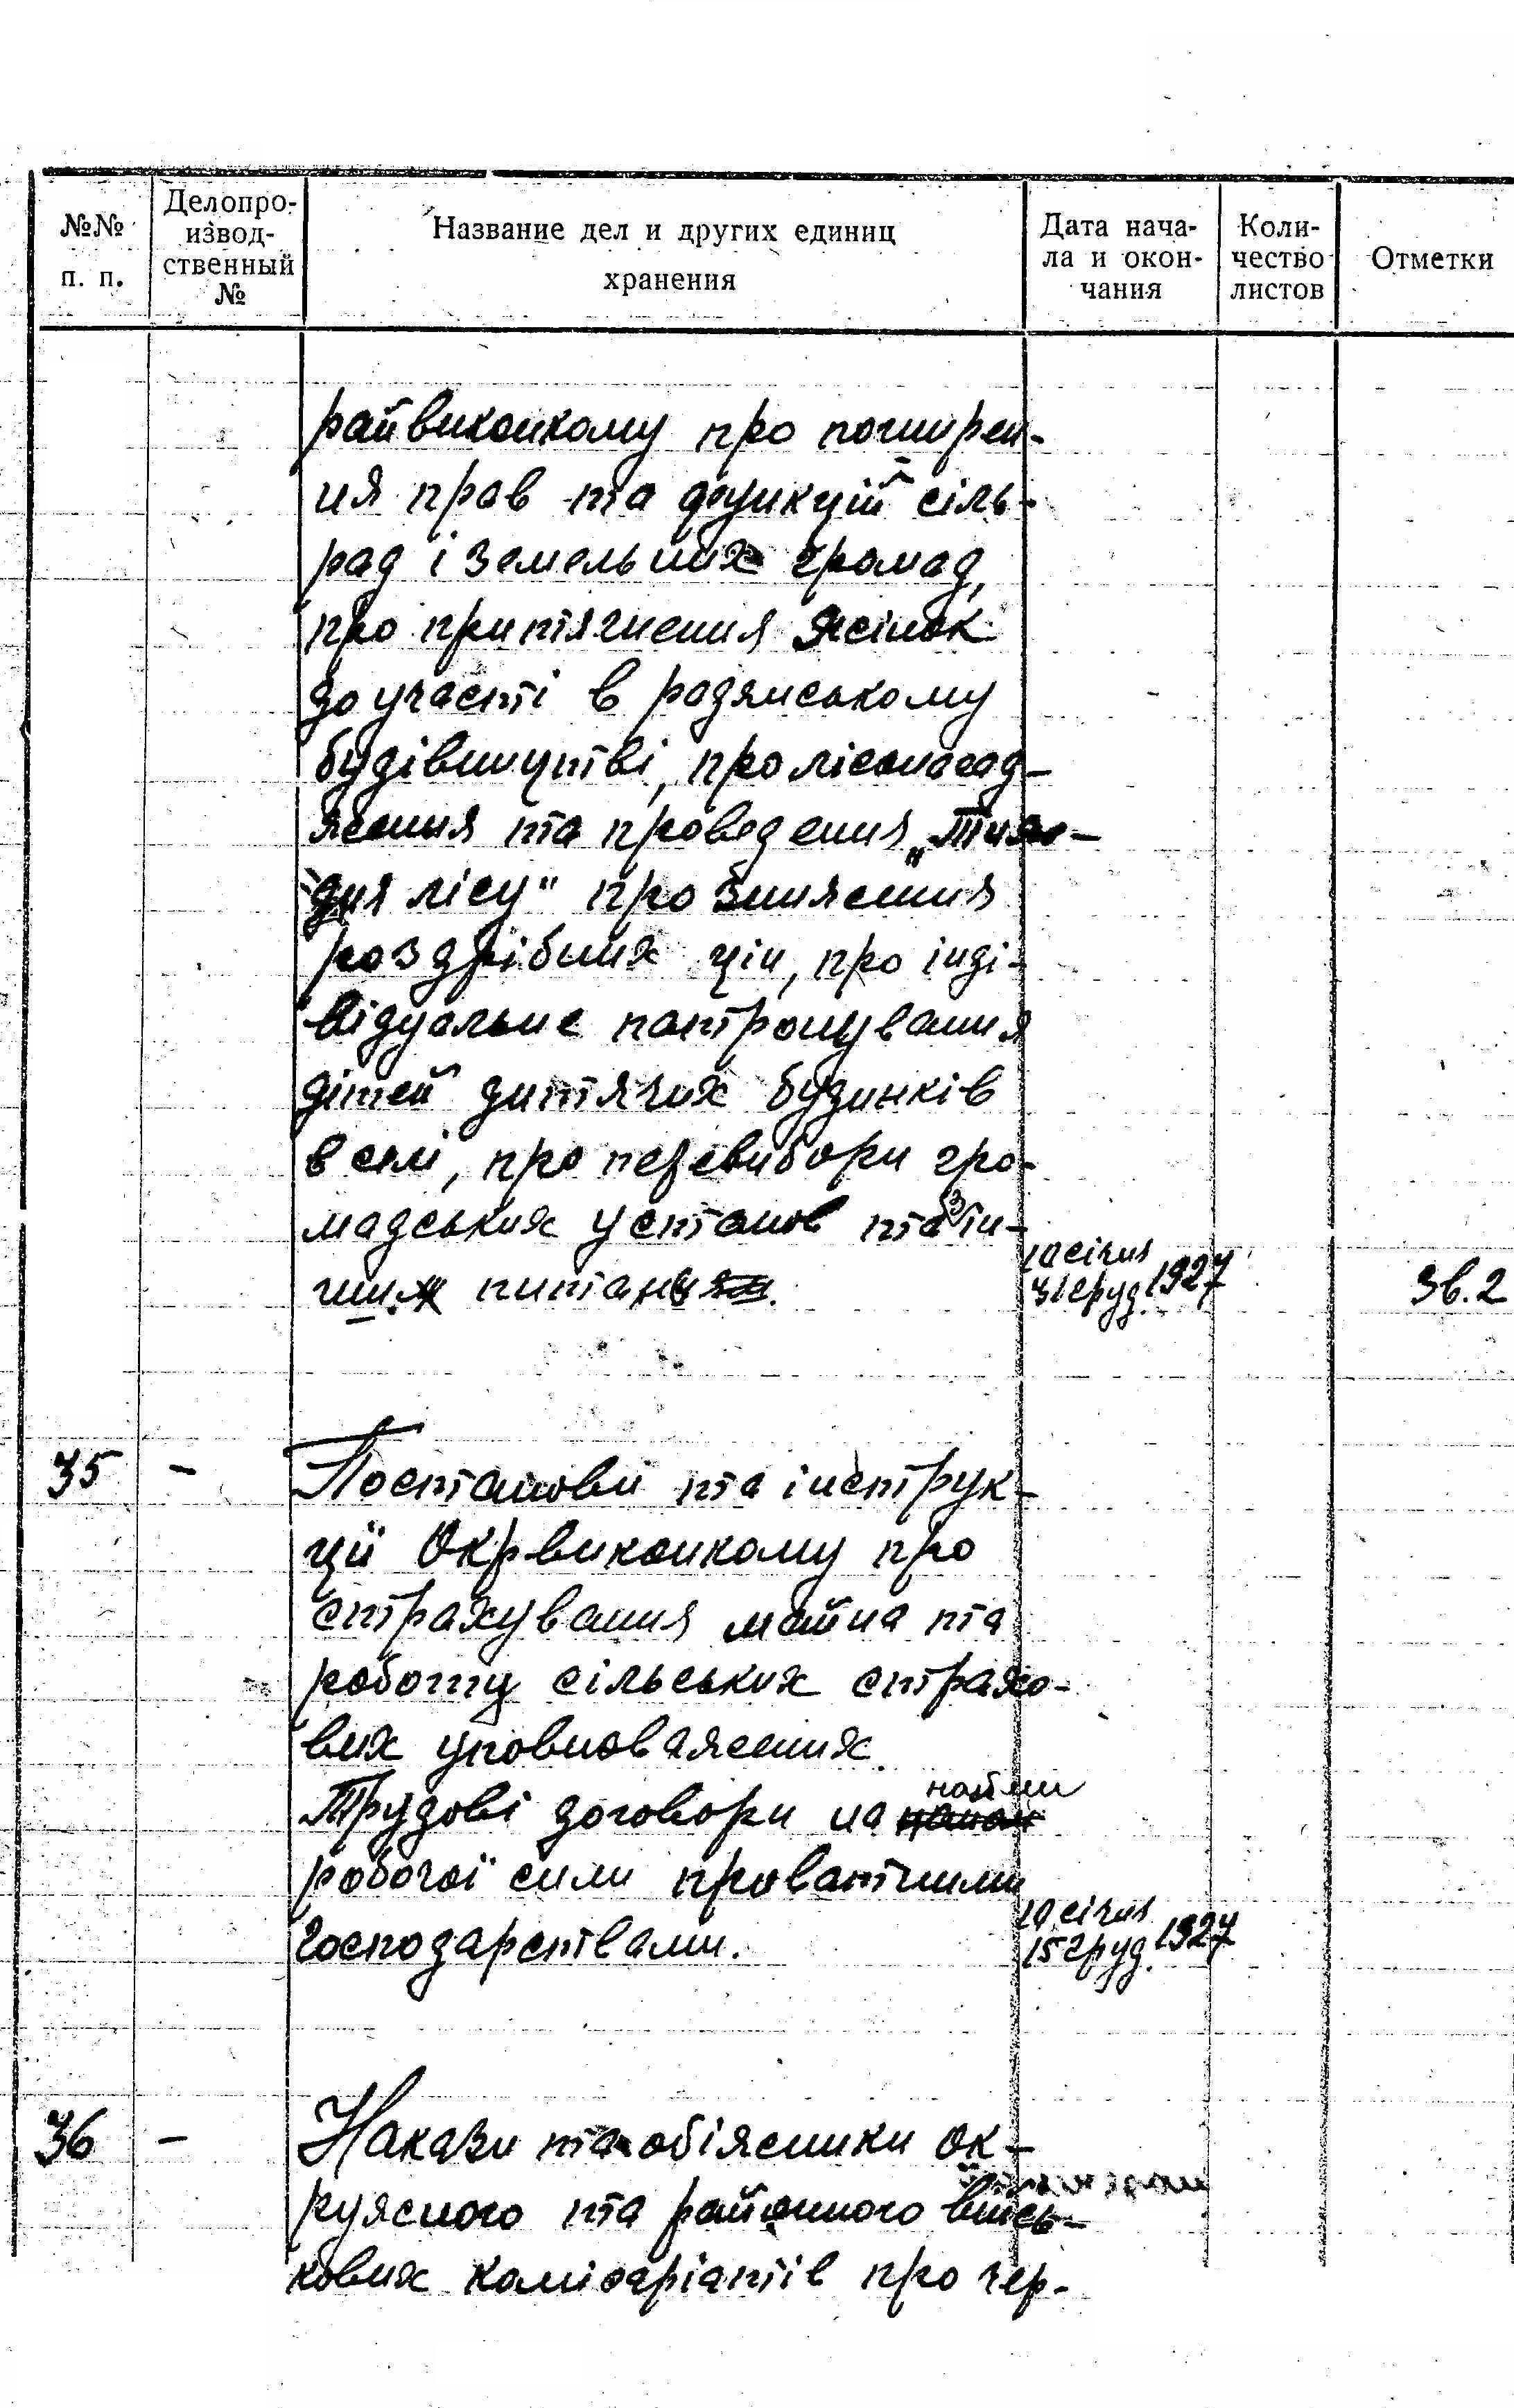 №№ п. п.
Делопро-
извод-
ственный
№
Название дел и других единиц
хранения
Дата нача-
ла и окон-
чания
Коли-
чество
листов
Отметки
райвиконкому про поширен-
ня прав та функцій сіль-
рад і земельних громад,
про притягнення жінок
до участі в радянському
будівництві, про лісонасад-
ження та проведення „Тиж-
дня лісу" про зниження
роздрібних цін, про інді-
відуальне патронування
дітей дитячих будинків
в селі, про перевибори гро-
мадських установ та з ін-
ших питань.
10 січня
31 груд. 1927
Зв. 2
35 -
Постанови та інструк-
ції Окрвиконкому про
страхування майна та
роботу сільських страхо-
вих уповноважених.
Трудові договори на найми
робочої сили приватними
господарствами.
10 січня
15 груд. 1927
36 -
Накази та обіжники ок-
ружного та районного війсь-
кових комісаріатів про чер-